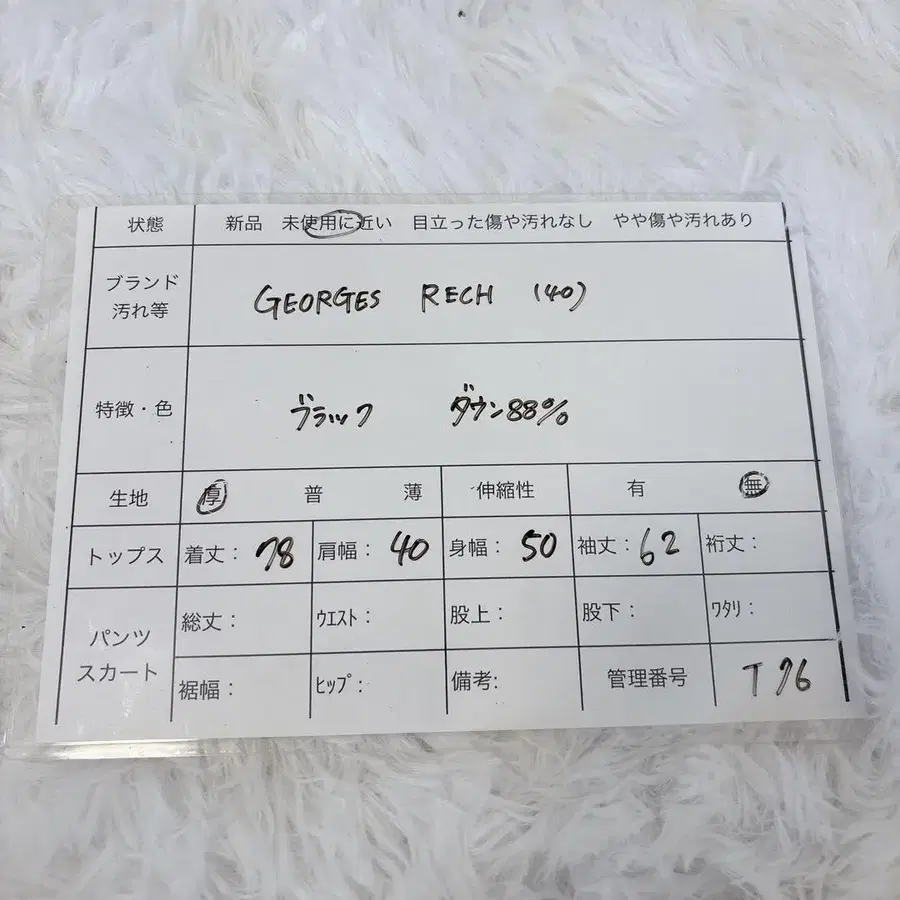 状態 新品 未使用に近い 目立った傷や汚れなし やや傷や汚れあり
ブランド
汚れ等
GEORGES RECH (40)
特徴・色 ブラック ダウン88%
生地 厚 普 薄 伸縮性 有 無
トップス 着丈: 78 肩幅: 40 身幅: 50 袖丈: 62 裄丈:
パンツ
スカート
総丈: ウエスト: 股上: 股下: ワタリ:
裾幅: ヒップ: 備考: 管理番号 T76